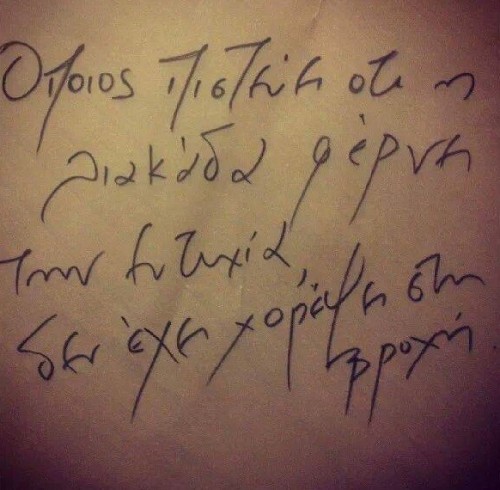 Όποιος πιστεύει οτι η
λιακάδα φέρνει
την ευτυχία,
δεν έχει χορέψει στη
βροχή.